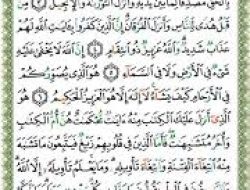 بِٱلْحَقِّ مُصَدِّقًا لِّمَا بَيْنَ يَدَيْهِ وَأَنزَلَ ٱلتَّوْرَىٰةَ وَٱلْإِنجِيلَ
مِن قَبْلُ هُدًى لِّلنَّاسِ وَأَنزَلَ ٱلْفُرْقَانَ إِنَّ ٱلَّذِينَ كَفَرُوا۟ بِـَٔايَـٰتِ ٱللَّهِ لَهُمْ
عَذَابٌ شَدِيدٌ وَٱللَّهُ عَزِيزٌ ذُو ٱنتِقَامٍ ٤ إِنَّ ٱللَّهَ لَا يَخْفَىٰ عَلَيْهِ
شَىْءٌ فِى ٱلْأَرْضِ وَلَا فِى ٱلسَّمَآءِ ٥ هُوَ ٱلَّذِى يُصَوِّرُكُمْ
فِى ٱلْأَرْحَامِ كَيْفَ يَشَآءُ لَآ إِلَـٰهَ إِلَّا هُوَ ٱلْعَزِيزُ ٱلْحَكِيمُ ٦
هُوَ ٱلَّذِىٓ أَنزَلَ عَلَيْكَ ٱلْكِتَـٰبَ مِنْهُ ءَايَـٰتٌ مُّحْكَمَـٰتٌ هُنَّ أُمُّ ٱلْكِتَـٰبِ
وَأُخَرُ مُتَشَـٰبِهَـٰتٌ فَأَمَّا ٱلَّذِينَ فِى قُلُوبِهِمْ زَيْغٌ فَيَتَّبِعُونَ مَا تَشَـٰبَهَ
مِنْهُ ٱبْتِغَآءَ ٱلْفِتْنَةِ وَٱبْتِغَآءَ تَأْوِيلِهِۦ وَمَا يَعْلَمُ تَأْوِيلَهُۥٓ إِلَّا ٱللَّهُ